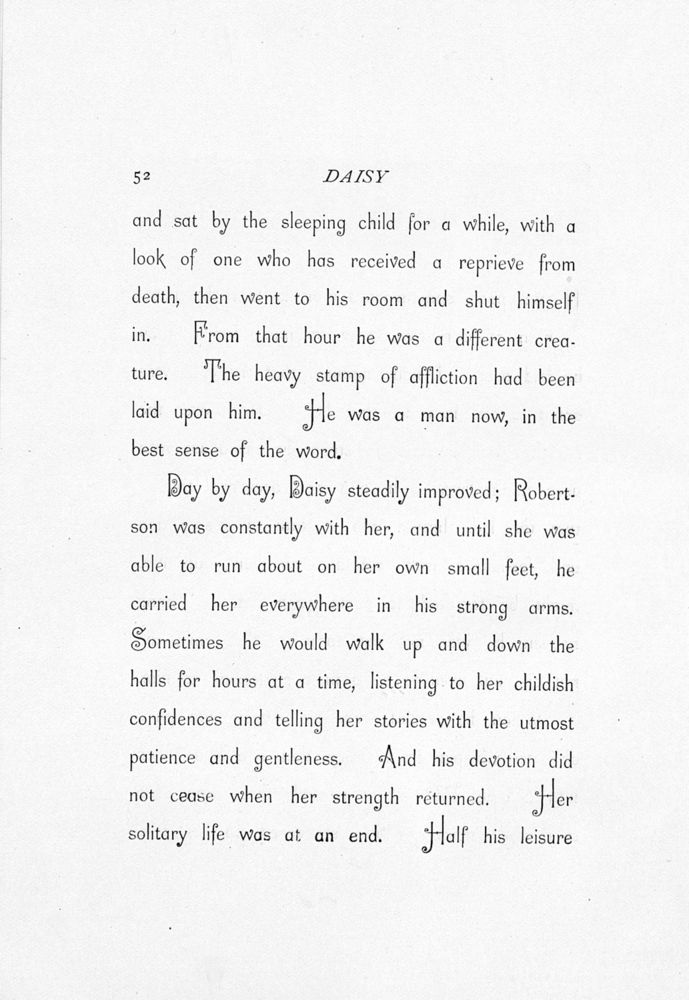 52 DAISY
and sat by the sleeping child for a while, with a
look of one who has received a reprieve from
death, then went to his room and shut himself
in. From that hour he was a different crea-
ture. The heavy stamp of affliction had been
laid upon him. He was a man now, in the
best sense of the word.
Day by day, Daisy steadily improved; Robert-
son was constantly with her, and until she was
able to run about on her own small feet, he
carried her everywhere in his strong arms.
Sometimes he would walk up and down the
halls for hours at a time, listening to her childish
confidences and telling her stories with the utmost
patience and gentleness. And his devotion did
not cease when her strength returned. Her
solitary life was at an end. Half his leisure